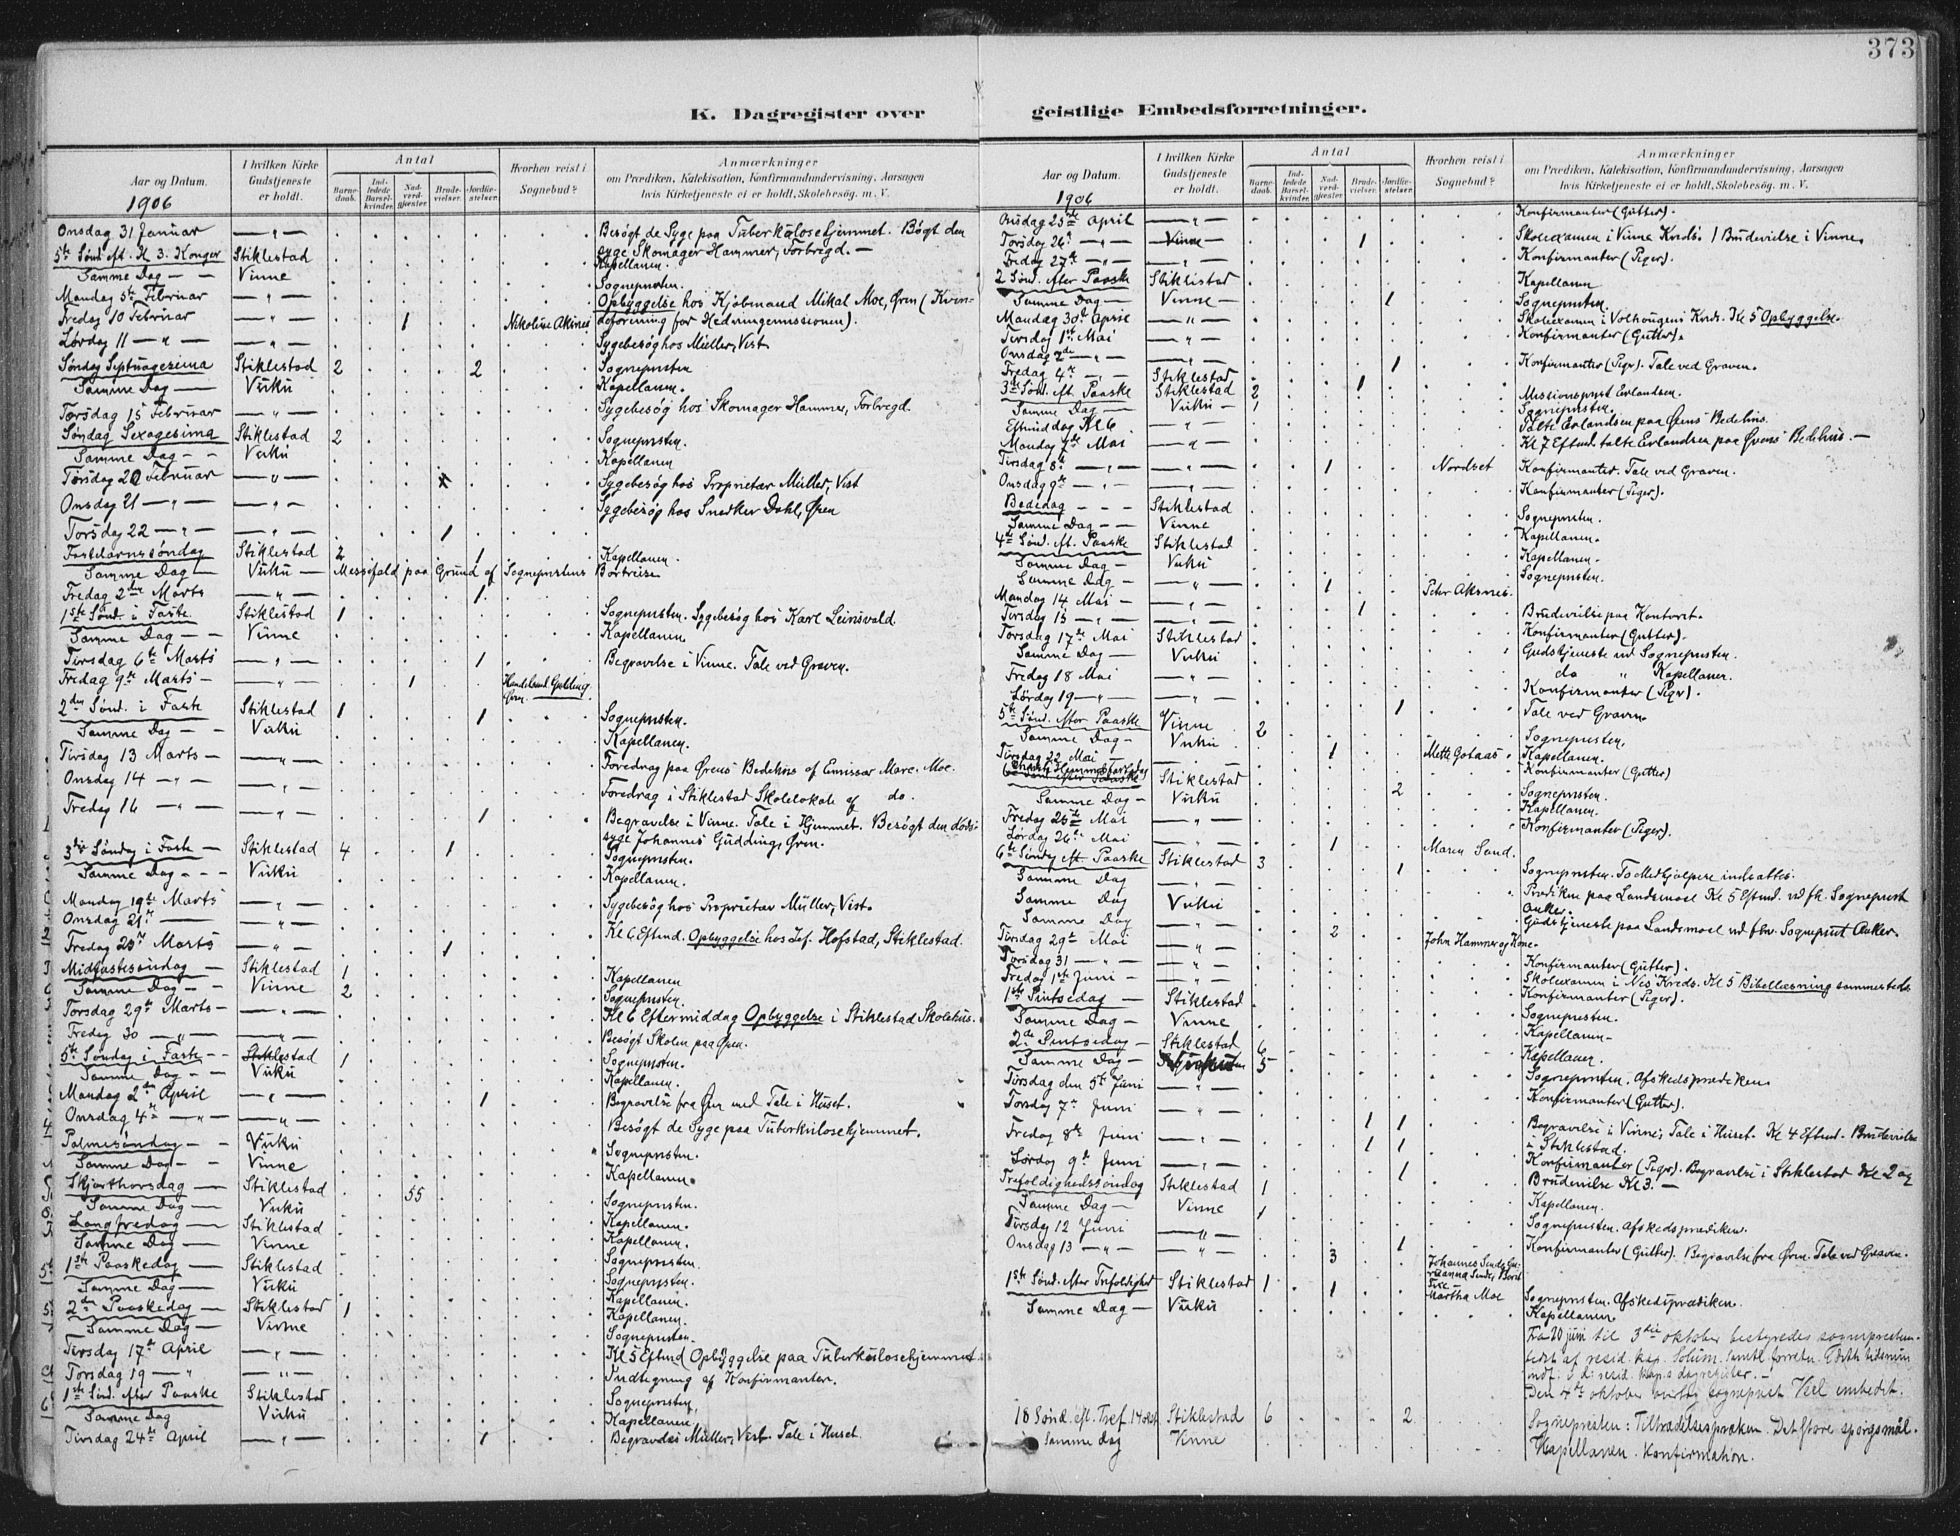 373
K. Dagregister over
Aar og Datum.
I hvilken Kirke Gudstjeneste er holdt.
Antal
Barnedaab.
Indledede Barselkvinder.
Nadverdgjæster.
Brudevielser.
Jordfæstelser.
Hvorhen reist i Sognebud?
Anmærkninger
om Prædiken, Katekisation, Konfirmandundervisning, Aarsagen
hvis Kirketjeneste ei er holdt, Skolebesøg. m. V.
1906
Onsdag 31 Januar — " — Besøgt de Syge paa Tuberkulosehjemmet. Bøgt den
syge Skomager Hammer, Forbregd. —
5te Sønd. eft. H. 3. Konger Stiklestad Kapellanen.
Samme Dag — — Vinne Sognepresten.
Mandag 5te Februar — " — Opbyggelse hos Kjøbmand Mikal Moe, Øren (Kvin-
Fredag 10 Februar — " — 1 Nikoline Aksnes deforening for Hedningemissionen).
Lørdag 11 — " — — " — Sygebesøg hos Müller, Vest.
Søndag Septuagesima Stiklestad 2 2 Sognepresten
Samme Dag — Vuku Kapellanen.
Torsdag 15 Februar — " — Sygebesøg hos Skomager Hammer, Forbregd.
Søndag Sexagesima Stiklestad 2 Sognepresten.
Samme Dag — — Vuku Kapellanen
Tirsdag 20 Februar — " — Sygebesøg hos Proprietær Müller, Vest
Onsdag 21 — " — — " — Sygebesøg hos Snedker Dahl, Øren
Torsdag 22 — " — — " — 1
Fastelavnssøndag Stiklestad 2 1 Kapellanen.
Samme Dag — Vuku — Messefald paa Grund af Sogneprestens Bortreise
Fredag 2den Marts — " — 1
1ste Sønd. i Faste Stiklestad 1 Sognepresten. Sygebesøg hos Karl Leinsvald
Samme Dag — — Vinne Kapellanen
Tirsdag 6te Marts — " — 1 Begravelse i Vinne. Tale ved Graven.
Fredag 9de Marts — — " — 1 Øren.
2den Sønd. i Faste Stiklestad 1 1 Sognepresten.
Samme Dag — — Vuku Kapellanen.
Tirsdag 13 Marts — — " — Foredrag paa Ørens Bedehus af Emissær Marc. Moe.
Onsdag 14 — " — — " — Foredrag i Stiklestad Skolelokale af do.
Fredag 16 — " — — " — 1 Begravelse i Vinne. Tale i Hjemmet. Besøgt den døds-
syge Johannes Gudding, Øren.
3die Søndag i Faste — Stiklestad 4 1 Sognepresten.
Samme Dag — — — Vuku Kapellanen.
Mandag 19de Marts — " — Sygebesøg hos Proprietær Müller, Vest.
Onsdag 21 — — " — Kl 6 Eftmd. Opbyggelse hos Hofstad, Stiklestad.
Fredag 23 Marts — " — 1
Midfastesøndag — Stiklestad 1 Kapellanen
Samme Dag — — Vinne 2 Sognepresten.
Torsdag 29de Marts — " — Kl 6 Eftermiddag Opbyggelse i Stiklestad Skolehus.
Fredag 30 — " — — " — Besøgt Skolen paa Øren.
5te Søndag i Faste — — Stiklestad 1 Sognepresten.
Samme Dag — — Vuku Kapellanen.
Mandag 2den April — " — 1 Begravelse fra Øren med Tale i Huset.
Onsdag 4de — " — — " — Besøgt de Syge paa Tuberkulosehjemmet.
Palmesøndag — — Vuku Sognepresten.
Samme Dag — — Vinne Kapellanen.
Skjærthorsdag — Stiklestad 55 Sognepresten.
Samme Dag — Vuku Kapellanen.
Langfredag — Stiklestad Kapellanen.
Samme Dag — Vinne Sognepresten.
1ste Paaskedag — Stiklestad Sognepresten.
Samme Dag — Vuku Kapellanen.
2den Paaskedag — Stiklestad 1 Kapellanen.
Samme Dag — Vinne Sognepresten.
Tirsdag 17de April — " — Kl 5 Eftmd Opbyggelse paa Tuberkulosehjemmet
Torsdag 19 — " — " — Indtegning af Konfirmanter.
1ste Sønd. efter Paaske Stiklestad Sognepresten,
Samme Dag Vuku Kapellanen
Tirsdag 24de April — " — 1 Begravdes Müller, Vest. Tale i Huset.
geistlige Embedsforretninger.
Aar og Datum.
I hvilken Kirke Gudstjeneste er holdt.
Antal
Barnedaab.
Indledede Barselkvinder.
Nadverdgjæster.
Brudevielser.
Jordfæstelser.
Hvorhen reist i Sognebud?
Anmærkninger
om Prædiken, Katekisation, Konfirmandundervisning, Aarsagen
hvis Kirketjeneste ei er holdt, Skolebesøg. m. V.
1906
Onsdag 25de April — " — Konfirmanter (Gutter).
Torsdag 26 — " — Vinne — 1 Skoleexamen i Vinne Kreds. 1 Brudevielse i Vinne.
Fredag 27de — " — — " — Konfirmanter (Piger).
2 Sønd. efter Paaske Stiklestad Kapellanen
Samme Dag — Vinne — 1 Sognepresten.
Mandag 30te April — " — Skoleexamen i Volhaugens Kreds. Kl 5 Opbyggelse.
Tirsdag 1ste Mai Konfirmanter (Gutter).
Onsdag 2de — " — — " — 1 Konfirmanter (Piger). Tale ved Graven.
Fredag 4de — Stiklestad 1
3die Sønd. eft. Paaske Stiklestad 2 Missionsprest Erlandsen.
Samme Dag — Vuku — 1 Sognepresten.
Eftmiddag Kl 6 — " — Talte Erlandsen paa Ørens Bedehus.
Mandag 7de Mai — " — Kl 7 Eftmd. talte Erlandsen paa Ørens Bedehus. —
Tirsdag 8de — " — — " — 1 Nordset Konfirmanter. Tale ved Graven.
Onsdag 9de — " — Konfirmanter (Piger).
Bededag — — — Stiklestad Sognepresten.
Samme Dag — Vinne Kapellanen.
4de Sønd. eft. Paaske Stiklestad Kapellanen.
Samme Dag — Vuku Sognepresten.
Samme Dag — — " — 1 Peter Aksnes.
Mandag 14 Mai — — " — 1 Brudevielse paa Kontoret.
Tirsdag 15 — " — Konfirmanter (Gutter).
Torsdag 17de Mai Stiklestad Gudstjeneste ved Sognepresten.
Samme Dag — Vuku do " Kapellanen.
Fredag 18 Mai — " — Konfirmanter (Piger).
Lørdag 19 — " — — " — 1 Tale ved Graven.
5te Sønd. efter Paaske Vinne 2 Sognepresten.
Samme Dag — Vuku Kapellanen.
Tirsdag 22 Mai — " — 1 Mette Gotaas Konfirmanter (Gutter)
Christi Himmelfartsdag Stiklestad 2 Sognepresten.
Samme Dag — Vuku Kapellanen.
Fredag 25de Mai — " — Konfirmanter (Piger).
Lørdag 26de Mai — " — 1 Maren Sand.
6te Søndag eft. Paaske Stiklestad 3 1 Sognepresten. To Medhjælpere indsattes.
Samme Dag — " — Prædiken paa Landsmaal Kl 5 Eftmd. ved fh. Sogneprest
Samme Dag Vuku Anker.
Samme Dag — Gudstjeneste paa Landsmaal ved fhv. Sogneprest Anker.
Tirsdag 29de Mai — " — 2 John Hammer og Kone.
Torsdag 31 — " — — " — Konfirmanter (Gutter).
Fredag 1ste Juni — " — Skoleexamen i Nes Kreds. Kl 5 Bibellæsning sammesteds.
Konfirmanter (Piger).
1ste Pintsedag — Stiklestad Sognepresten.
Samme Dag — Vinne Kapellanen
2de Pintsedag — Stiklestad 6 Kapellanen.
Samme Dag — 5 Sognepresten. Afskedsprædiken.
Tirsdag den 5te Juni — " — Konfirmanter (Gutter).
Torsdag 7de Juni — " — 1 1 Begravelse i Vinne; Tale i Huset. Kl 4 Eftmd. Brudevielse
Fredag 8de Juni — " — 1 1 i Stiklestad.
Lørdag 9de Juni — " — 1 Konfirmanter (Piger). Begravelse i Stiklestad Kl 2 og
Trefoldighedssøndag Stiklestad 1 Brudevielse Kl 3. —
Samme Dag — Vinne 1 Kapellanen.
Tirsdag 12 Juni — " — Sognepresten. Afskedsprædiken.
Onsdag 13 — " — — " — 3 1 Konfirmanter (Gutter). Begravelse fra Øren. Tale ved Graven.
1ste Sønd. efter Trefoldighed Stiklestad 1 1 Martha Moe Sognepresten. Afskedsprædiken.
Samme Dag — Vuku Kapellanen
Fra 20 juni til 3die oktober bestyredes sogneprestem-
bedet af resid. kap. Solum.
Den 4de oktober overtog sogneprest Veel embedet.
18 Sønd. eft. Tref. 14 okt Stiklestad 6 2 Sognepresten: Tiltrædelsespræken. Det store spørgsmål.
Samme dag Vinne Kapellanen. Konfirmation.